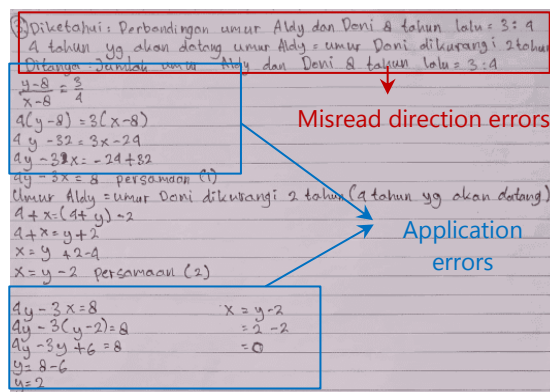 ③ Diketahui : Perbandingan umur Aldy dan Doni 8 tahun lalu = 3 : 4
4 tahun yg akan datang umur Aldy = umur Doni dikurangi 2 tahun
Ditanya Jumlah umur Aldy dan Doni 8 tahun lalu = 3 : 4
y-8/x-8 = 3/4
4(y-8) = 3(x-8)
4y -32 = 3x -24
4y - 3x = -24+32
4y - 3x = 8 persamaan (1)
Umur Aldy = umur Doni dikurangi 2 tahun (4 tahun yg akan datang)
4+x = (4+y) -2
4+x = y+2
x = y +2-4
x = y -2 persamaan (2)
4y - 3x = 8
4y - 3(y-2) = 8
4y - 3y + 6 = 8
y = 8-6
y = 2
x = y-2
= 2 -2
= 0
Misread direction errors
Application
errors